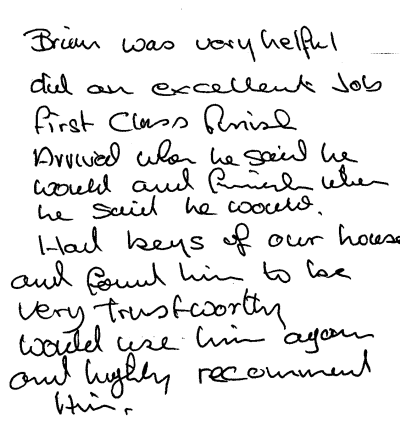 Brian was very helpful
did an excellent Job
First Class finish
Arrived when he said he
would and finish when
he said he would.
Had keys of our house
and found him to be
very trustworthy
would use him again
and highly recommend
Him.